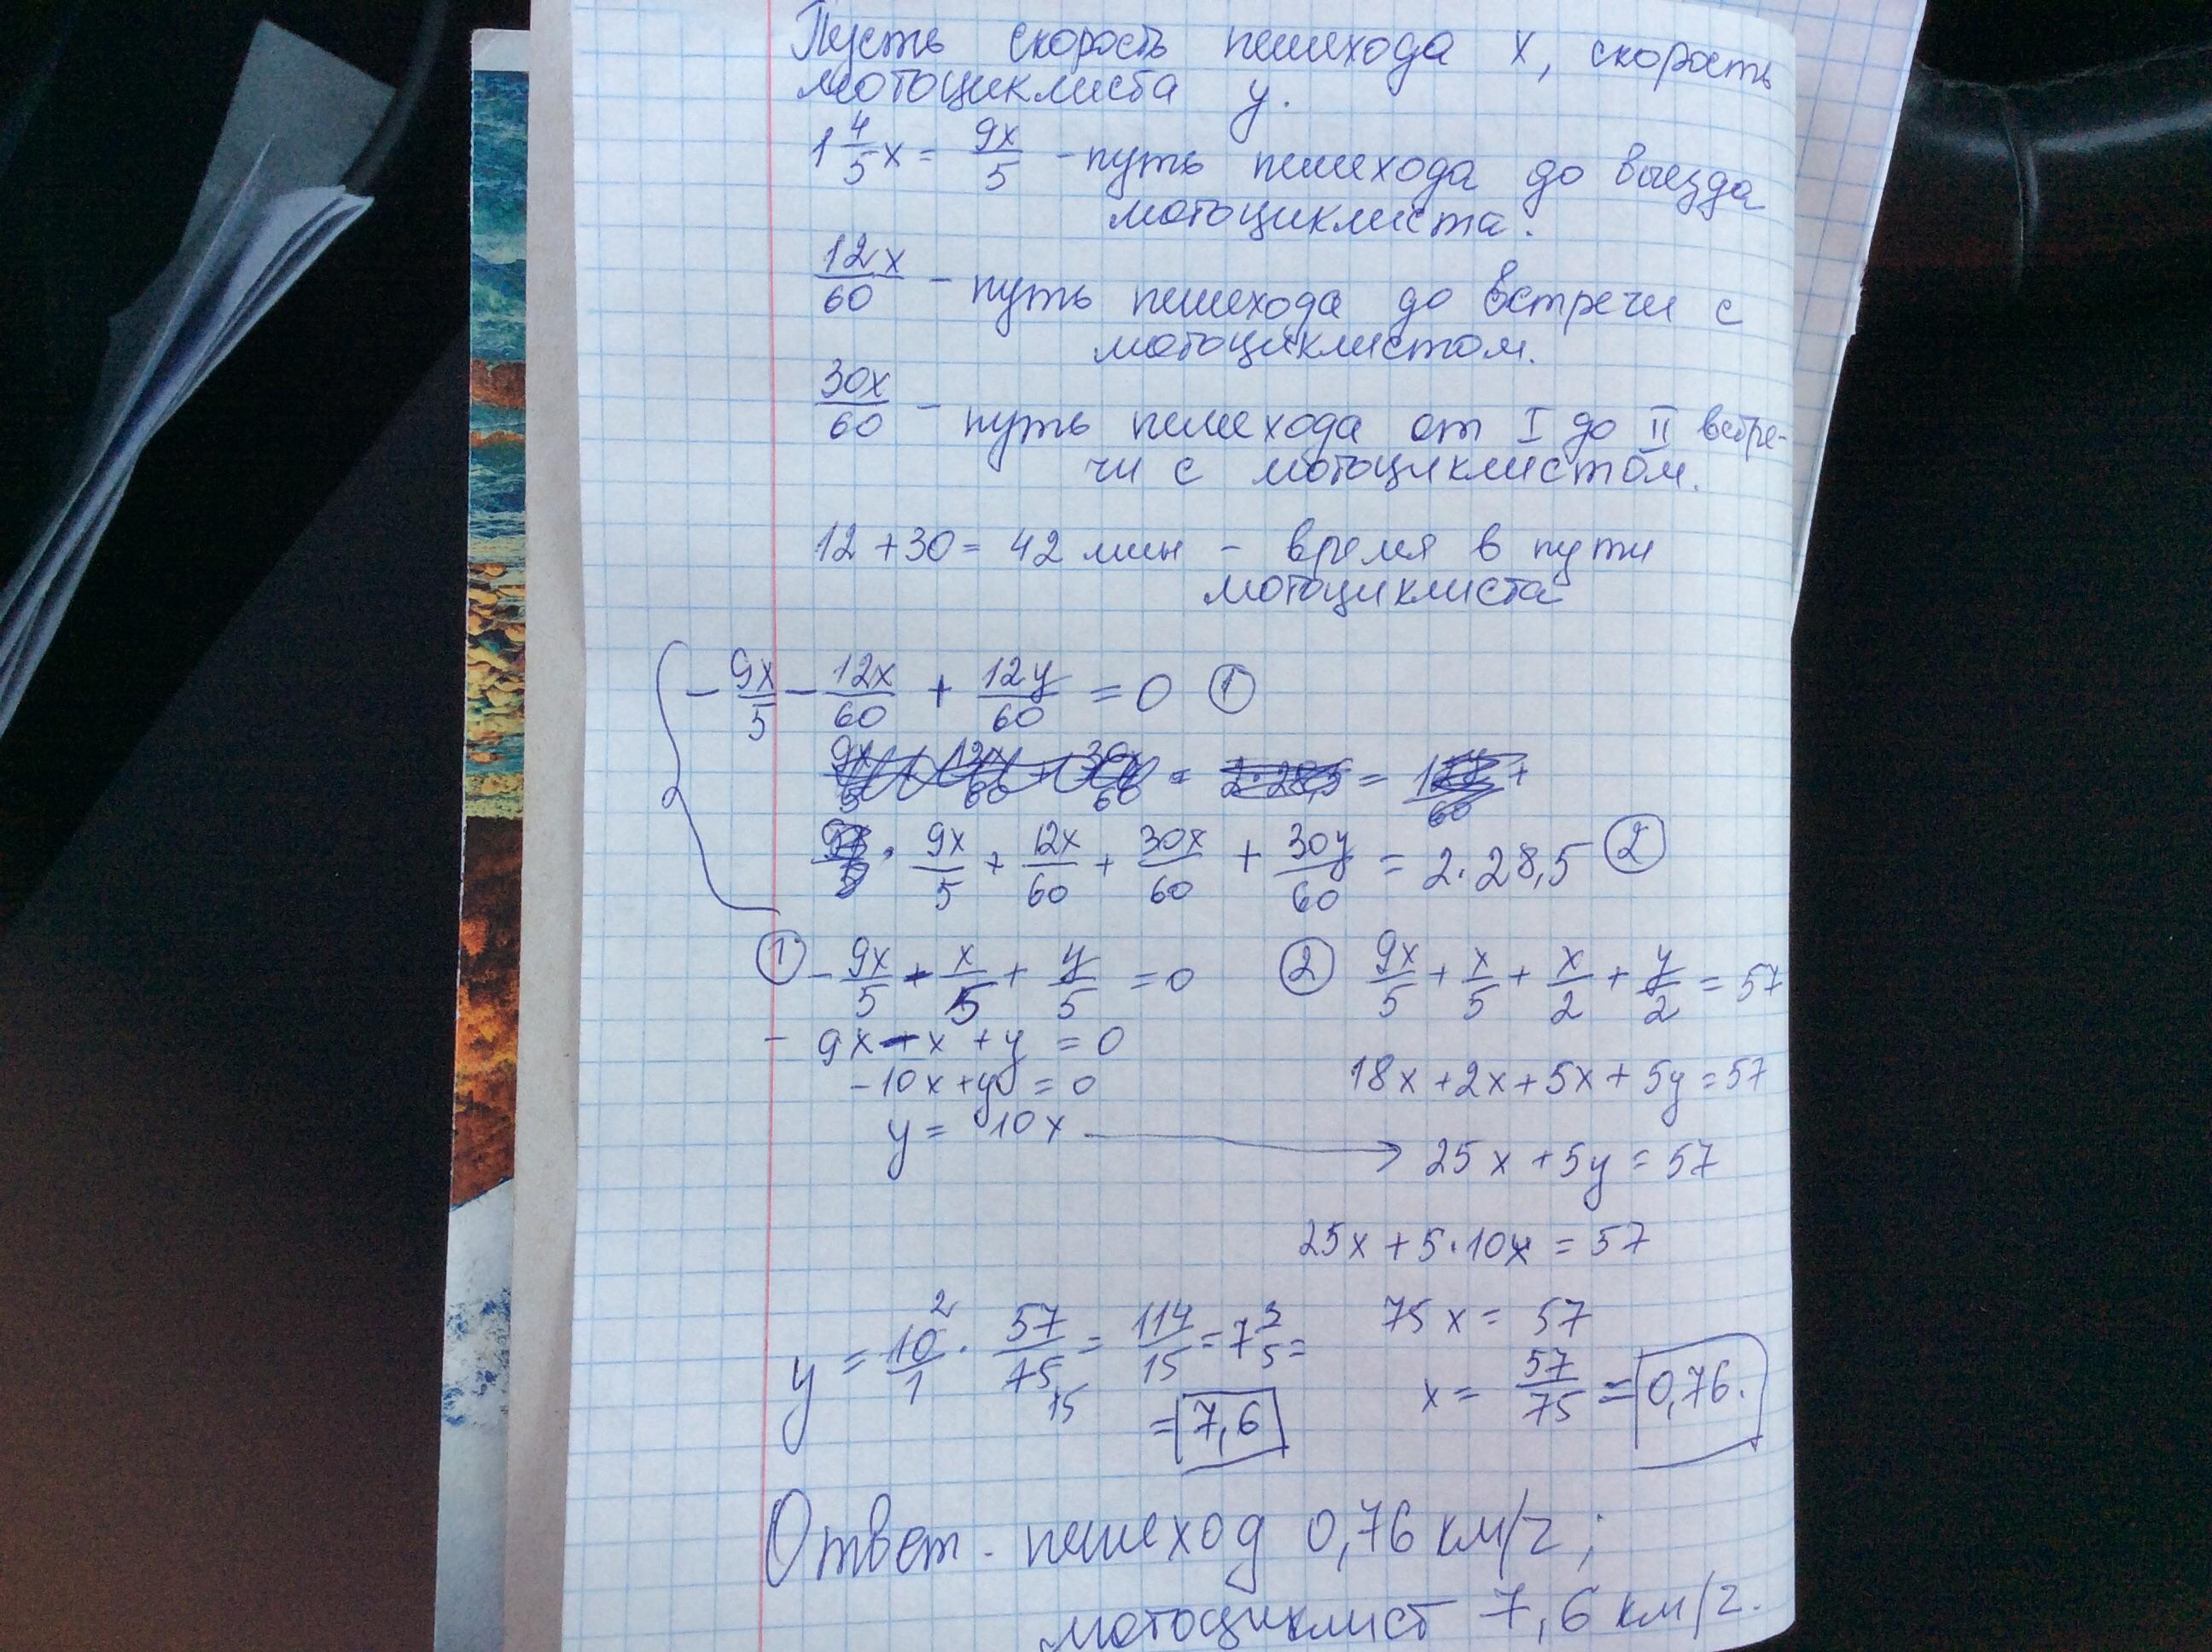 Пусть скорость пешехода x, скорость
мотоциклиста y.
1 4/5 x = 9x/5 - путь пешехода до выезда
мотоциклиста.
12x/60 - путь пешехода до встречи с
мотоциклистом.
30x/60 - путь пешехода от I до II встре-
чи с мотоциклистом.
12 + 30 = 42 мин - время в пути
мотоциклиста
- 9x/5 - 12x/60 + 12y/60 = 0 ①
9x/5 + 12x/60 + 30x/60 + 30y/60 = 2·28,5 ②
① - 9x/5 - x/5 + y/5 = 0 ② 9x/5 + x/5 + x/2 + y/2 = 57
- 9x - x + y = 0
-10x + y = 0 18x + 2x + 5x + 5y = 57
y = 10x → 25x + 5y = 57
25x + 5·10x = 57
y = 10/1 · 57/75 = 114/15 = 7 3/5 = 75x = 57
2 15
= 7,6 x = 57/75 = 0,76.
Ответ. пешеход 0,76 км/ч;
мотоциклист 7,6 км/ч.